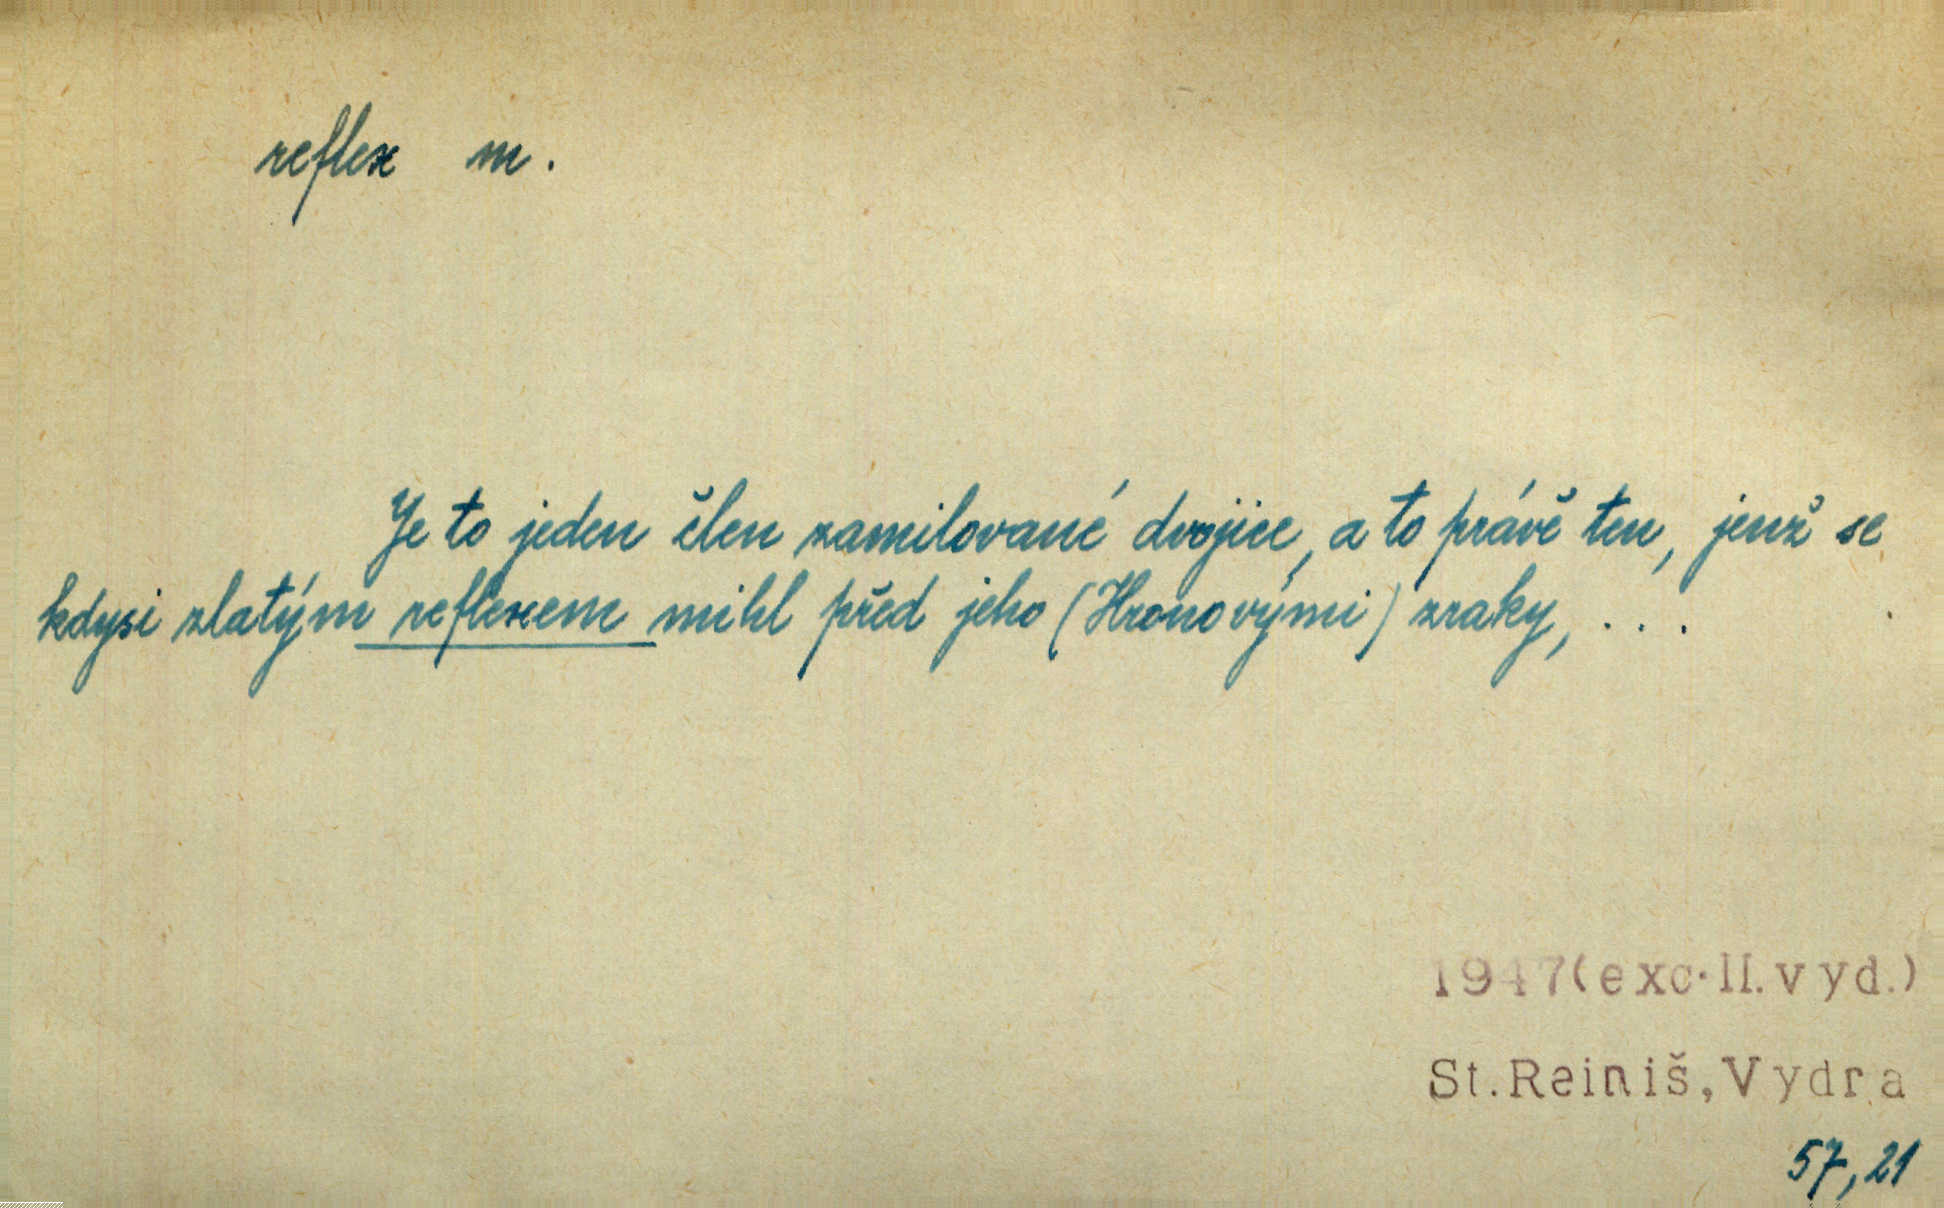 reflex m.
Je to jeden člen zamilované dvojice, a to právě ten, jenž se
kdysi zlatým reflexem mihl před jeho (Hronovými) zraky, . . .
1947(exc.II.vyd.)
St.Reiniš,Vydra
57,21